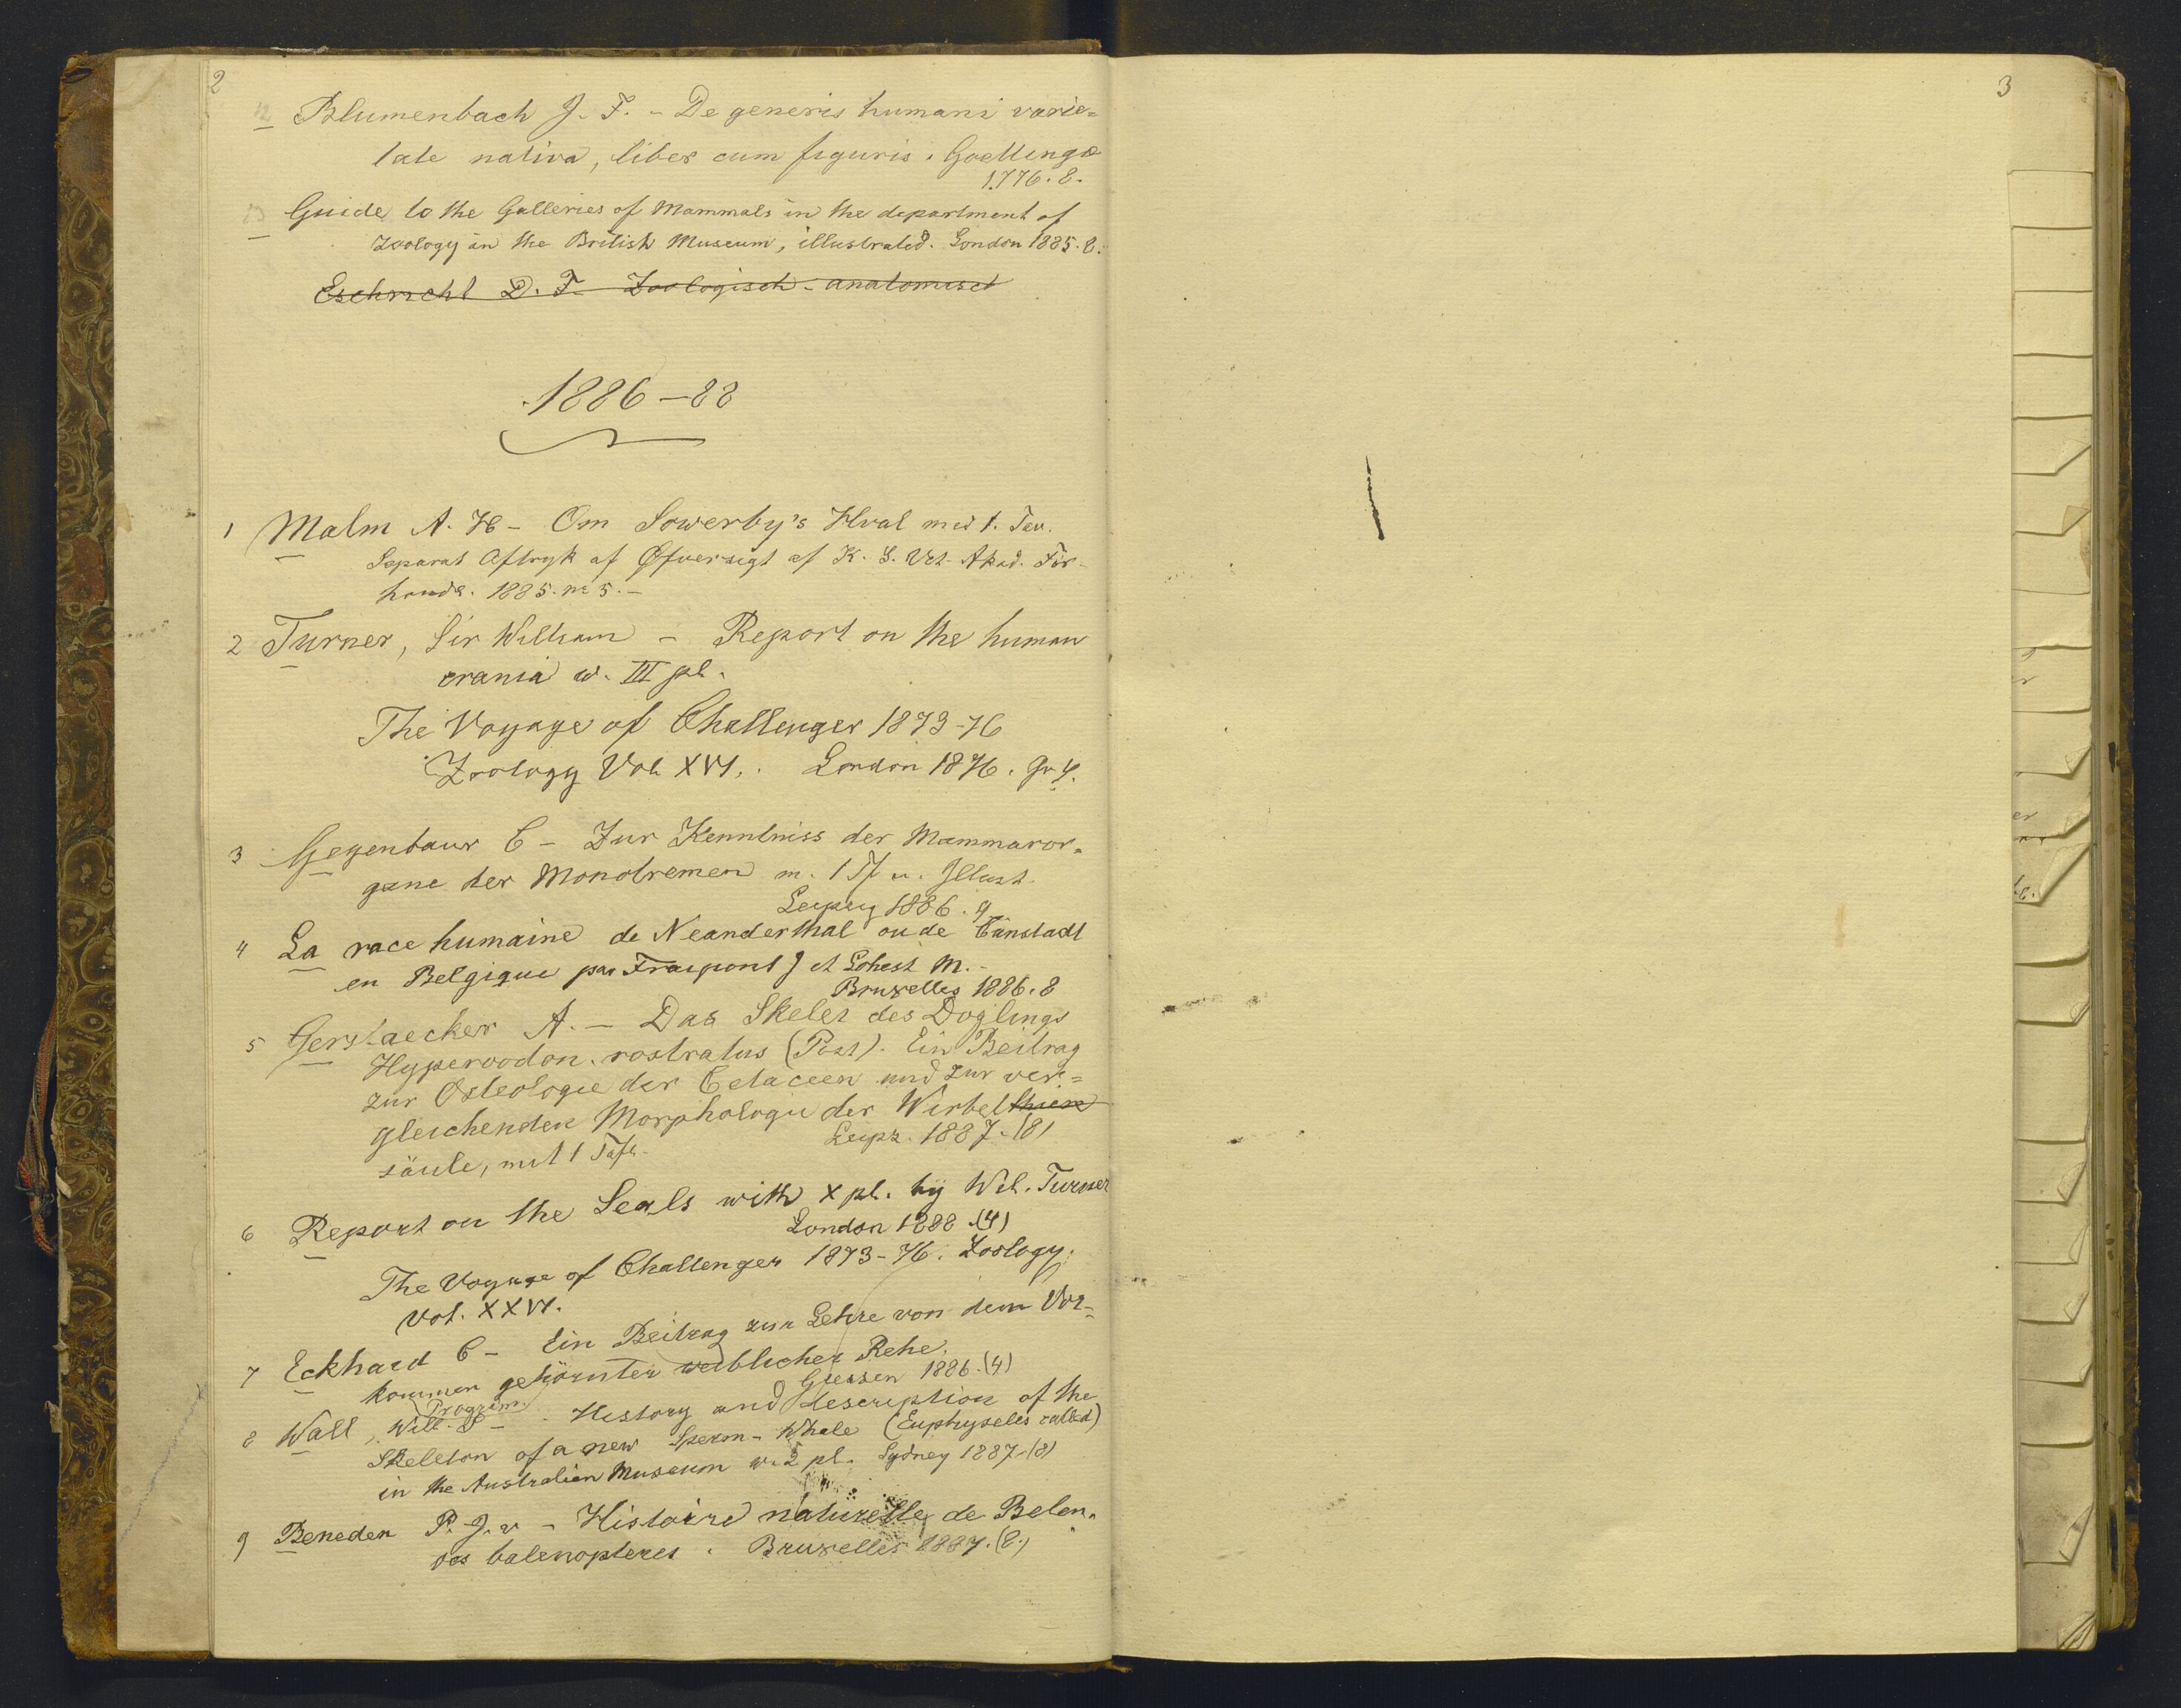 2
12 Blumenbach J. F. - De generis humani varie=
tate nativa, liber cum figuris. Goettingæ
1776. 8.
13 Guide to the Galleries of Mammals in the department of
Zoology in the British Museum, illustrated. London 1885. 8.
Eschricht D. F. Zoologisch-anatomisch
1886-88
1 Malm A. H - Om Sowerby's Hval med 1. Tav.
Separat Aftryk af Öfversigt af K. S. Vet. Akad. För-
handl. 1885. No 5. -
2 Turner, Sir William - Report on the human
crania w. III pl.
The Voyage of Challenger 1873-76
Zoology Vol. XVI. London 1876. gr 4.
3 Gegenbaur C - Zur Kenntniss der Mammaror=
gane der Monotremen m. 1 Tf u. Illust.
Leipzig 1886. 4
4 La race humaine de Neanderthal ou de Canstadt
en Belgique par Fraipont J et Lohest M. -
Bruxelles 1886. 8
5 Gerstaecker A. - Das Skelet des Döglings
Hyperoodon rostratus (Pont). Ein Beitrag
zur Osteologie der Cetaceen und zur ver=
gleichenden Morphologie der Wirbelthiere
säule, mit 1 Tafl. Leipz. 1887. (8)
6 Report on the Seals with X pl. by Wil. Turner
London 1888. (4)
The Voyage of Challenger 1873-76. Zoology.
Vol. XXVI.
7 Eckhard C - Ein Beitrag zur Lehre von dem Vor=
kommen gehörnter weiblicher Rehe.
Program. Giessen 1886. (4)
8 Wall, Will. S - History and description of the
Skeleton of a new Sperm-Whale (Euphysetes called)
in the Australian Museum w. 2 pl. Sydney 1887. (8)
9 Beneden P. J. v - Histoire naturelle de Belen.
des balenopteres. Bruxelles 1887. (8.)
3